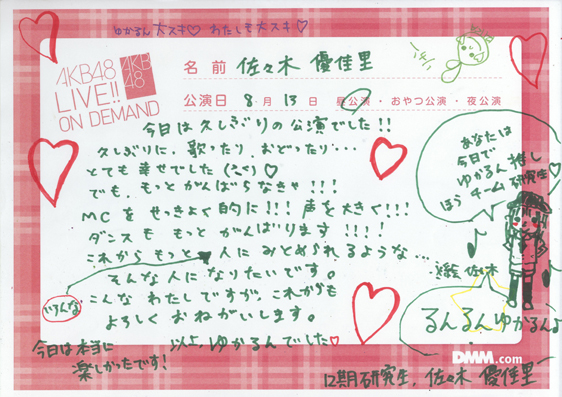 ゆかるん大スキ♡ わたしも大スキ♡
AKB48
LIVE!!
ON DEMAND
AKB
48
名前 佐々木 優佳里
公演日 8月 13日 昼公演・おやつ公演・夜公演
今日は久しぶりの公演でした!!
久しぶりに、歌ったり、おどったり・・・
とても幸せでした ♡
でも、もっとがんばらなきゃ!!!
MCをせっきょく的に!!! 声を大きく!!!
ダンスももっとがんばります!!!!
これからもっと 人にみとめられるような…
いろんな
そんな人になりたいです。
こんなわたしですが、これからも
よろしくおねがいします。
以上、ゆかるんでした♡
今日は本当に
楽しかったです!
あなたは
今日で
ゆかるん推し
研究生♡
チーム
佐々木
るんるんゆかるんよ
DMM.com
12期研究生、佐々木 優佳里